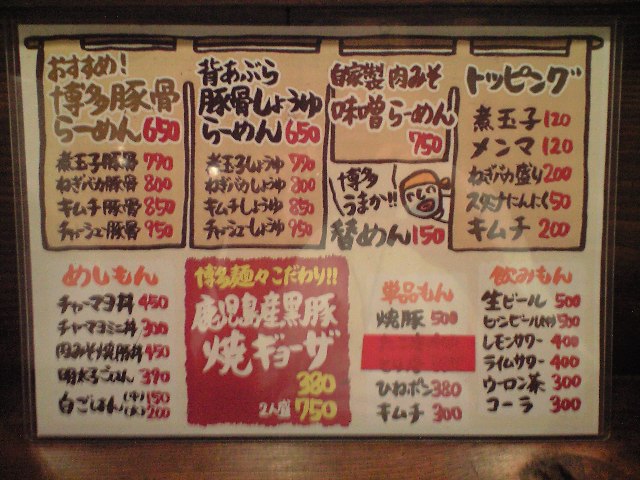 おすすめ!
博多豚骨
らーめん 650
煮玉子豚骨 770
ねぎバカ豚骨 800
キムチ豚骨 850
チャーシュー豚骨 950
背あぶら
豚骨しょうゆ
らーめん 650
煮玉子しょうゆ 770
ねぎバカしょうゆ 800
キムチしょうゆ 850
チャーシューしょうゆ 950
自家製肉みそ
味噌らーめん
750
博多
うまか!!
替めん 150
トッピング
煮玉子 120
メンマ 120
ねぎバカ盛り 200
スタミナにんにく 50
キムチ 200
めしもん
チャーマヨ丼 450
チャーマヨミニ丼 300
明太子ごはん 390
白ごはん (小)150
(大)200
博多麺々こだわり!!
鹿児島産黒豚
焼ギョーザ
380
2人盛 750
単品もん
焼豚 500
ひねポン 380
キムチ 300
飲みもん
生ビール 500
ビンビール(中) 500
レモンサワー 400
ライムサワー 400
ウーロン茶 300
コーラ 300